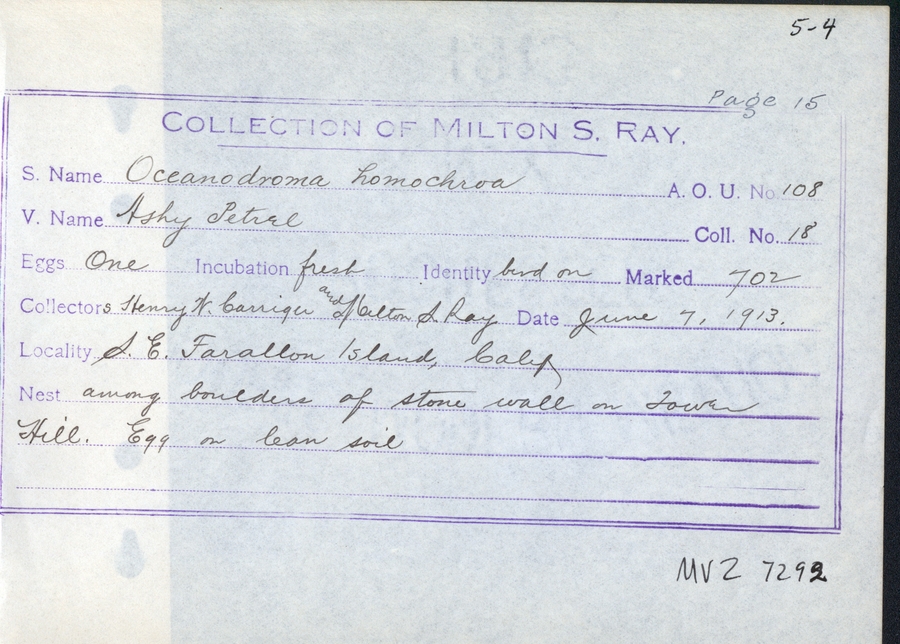 5-4
Page 15
COLLECTION OF MILTON S. RAY.
S. Name Oceanodroma homochroa A. O. U. No. 108
V. Name Ashy Petrel Coll. No. 18
Eggs One Incubation fresh Identity bird on Marked 702
Collectors Henry W. Carriger and Milton S Ray Date June 7, 1913.
Locality S. E. Farallon Island, Calif
Nest among boulders of stone wall on Tower
Hill. Egg on soil
MVZ 7292